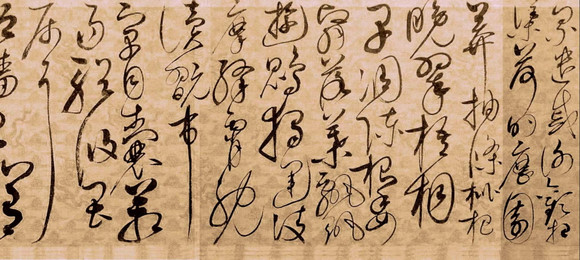 累遣慼謝歡招
渠荷的歷園
莽抽條枇杷
晚翠梧桐
早凋陳根委
翳落葉飄颻
遊鵾獨運凌
摩絳霄耽
讀翫市
寓目囊箱
易輶攸畏
屬耳
垣牆